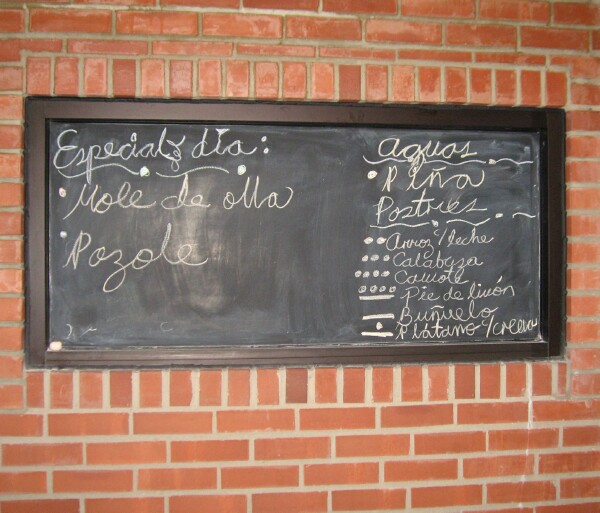 Especial d día:
Mole de olla
Pozole
Aguas
Piña
Postres
Arroz c/leche
Calabaza
Camote
Pie de limón
Buñuelo
Plátano c/crema